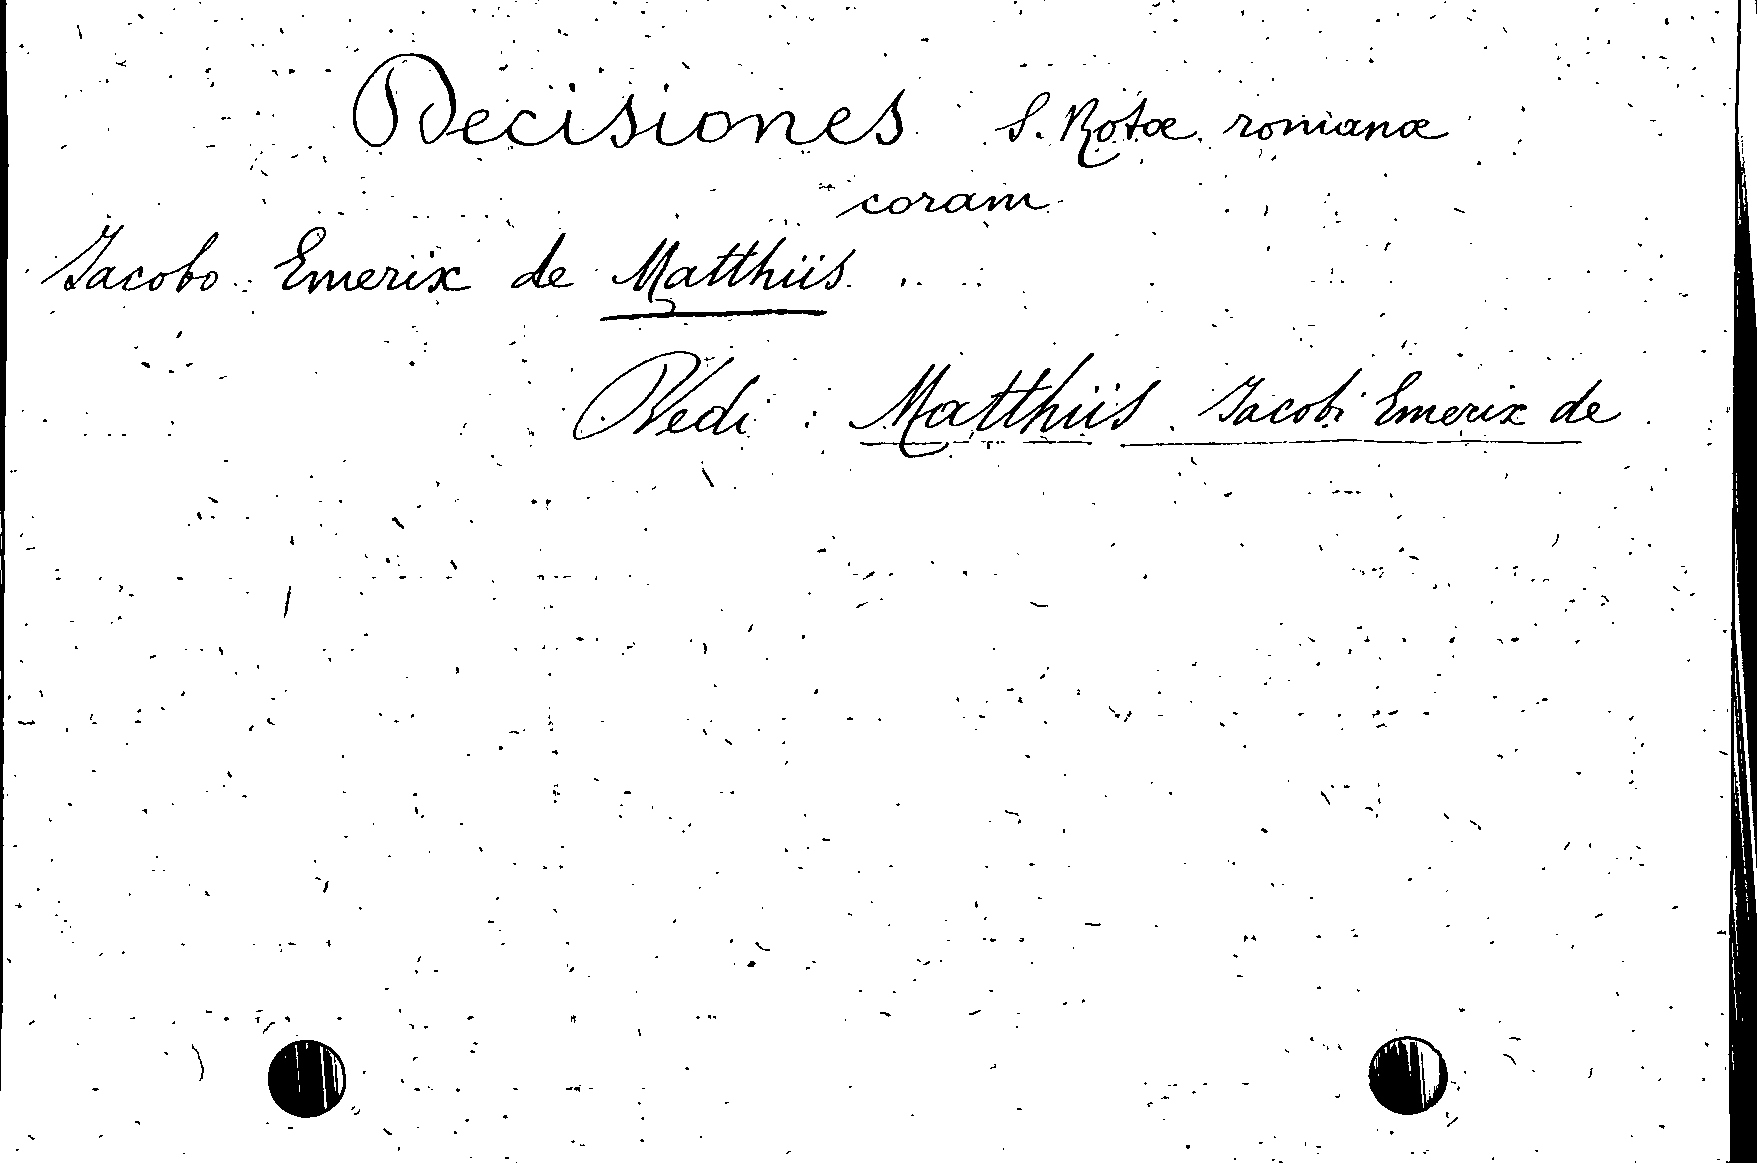 Decisiones S. Rotæ romanæ
coram
Jacobo Emerix de Matthiis
Vedi : Matthiis Jacobi Emerix de